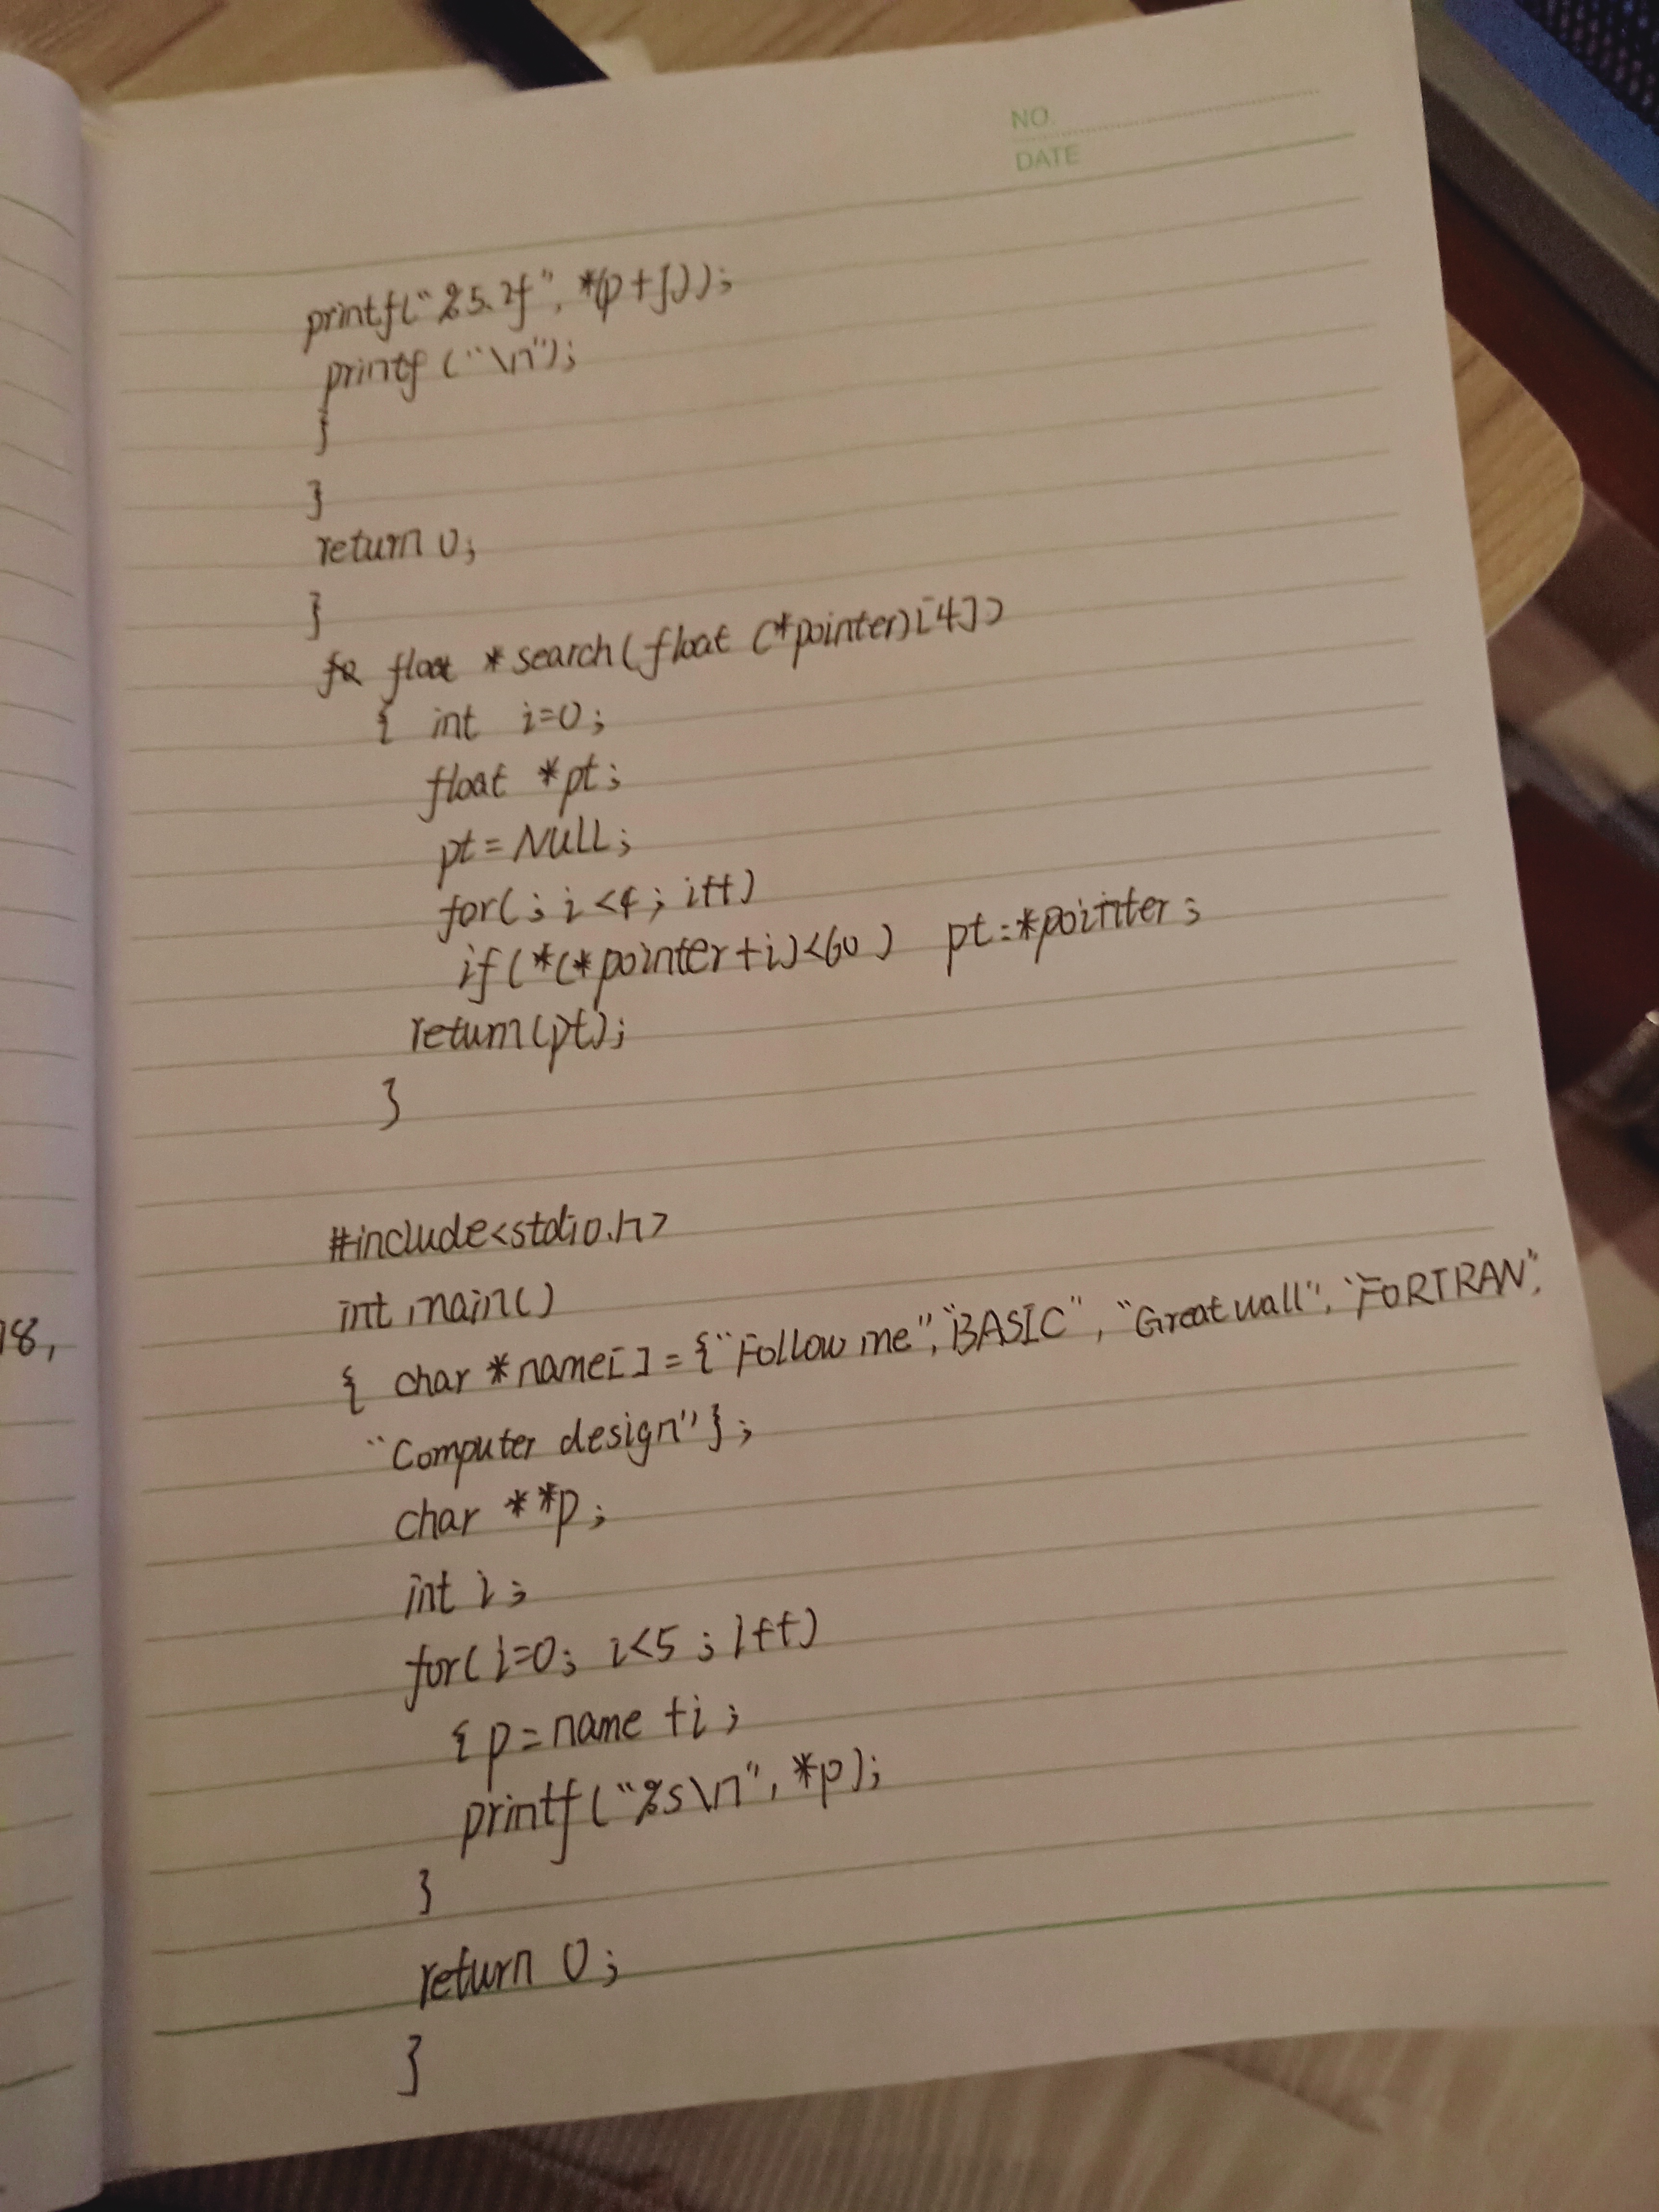 NO.
DATE
printf("%5.2f", *(p+j));
printf("\n");
}
}
return 0;
}
float *search(float (*pointer)[4])
{ int i=0;
float *pt;
pt=NULL;
for(; i<4; i++)
if(*(*pointer+i)<60) pt=*pointer;
return(pt);
}
18,
#include<stdio.h>
int main()
{ char *name[]={"Follow me","BASIC","Great wall","FORTRAN",
"Computer design"};
char **p;
int i;
for(i=0; i<5; i++)
{p=name+i;
printf("%s\n", *p);
}
return 0;
}